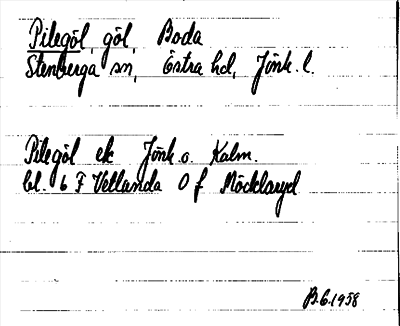 Pilegöl, göl, Boda
Stenberga sn, Östra hd, Jönk. l.
Pilegöl ek Jönk. o. Kalm.
bl. 6 F Vetlanda O f Möcklaryd
B.G. 1958